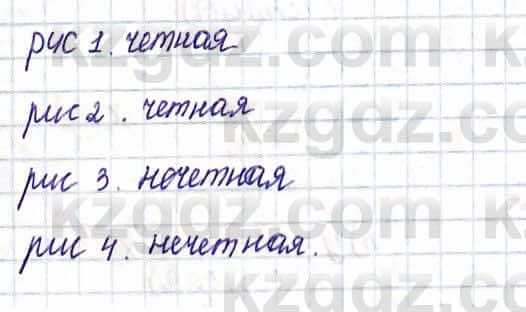 рис 1. четная
рис 2. четная
рис 3. нечетная
рис 4. нечетная.
kzgdz.com
kzgdz.com
kzgdz.com
kzgdz.com